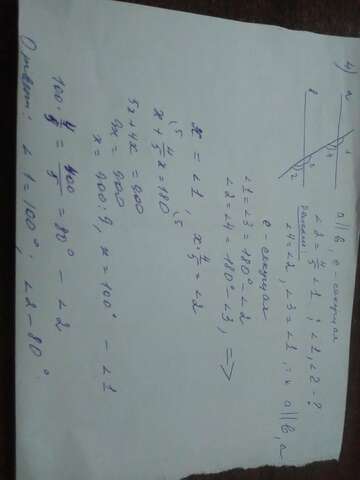 4)
a
b
1
3
4
2
a || b, c секущая
∠2 = 4/5 ∠1 ; ∠1, ∠2 - ?
Решение
∠4 = ∠2, ∠3 = ∠1, т.к a || b, а
c - секущая
∠1 = ∠3 = 180° - ∠2
∠2 = ∠4 = 180° - ∠3, =>
x = ∠1 x · 4/5 = ∠2
x + 4/5 x = 180
5x + 4x = 900
9x = 900
x = 900 : 9, x = 100° - ∠1
100 · 4/5 = 400/5 = 80° - ∠2
Ответ: ∠1 = 100° ; ∠2 - 80°